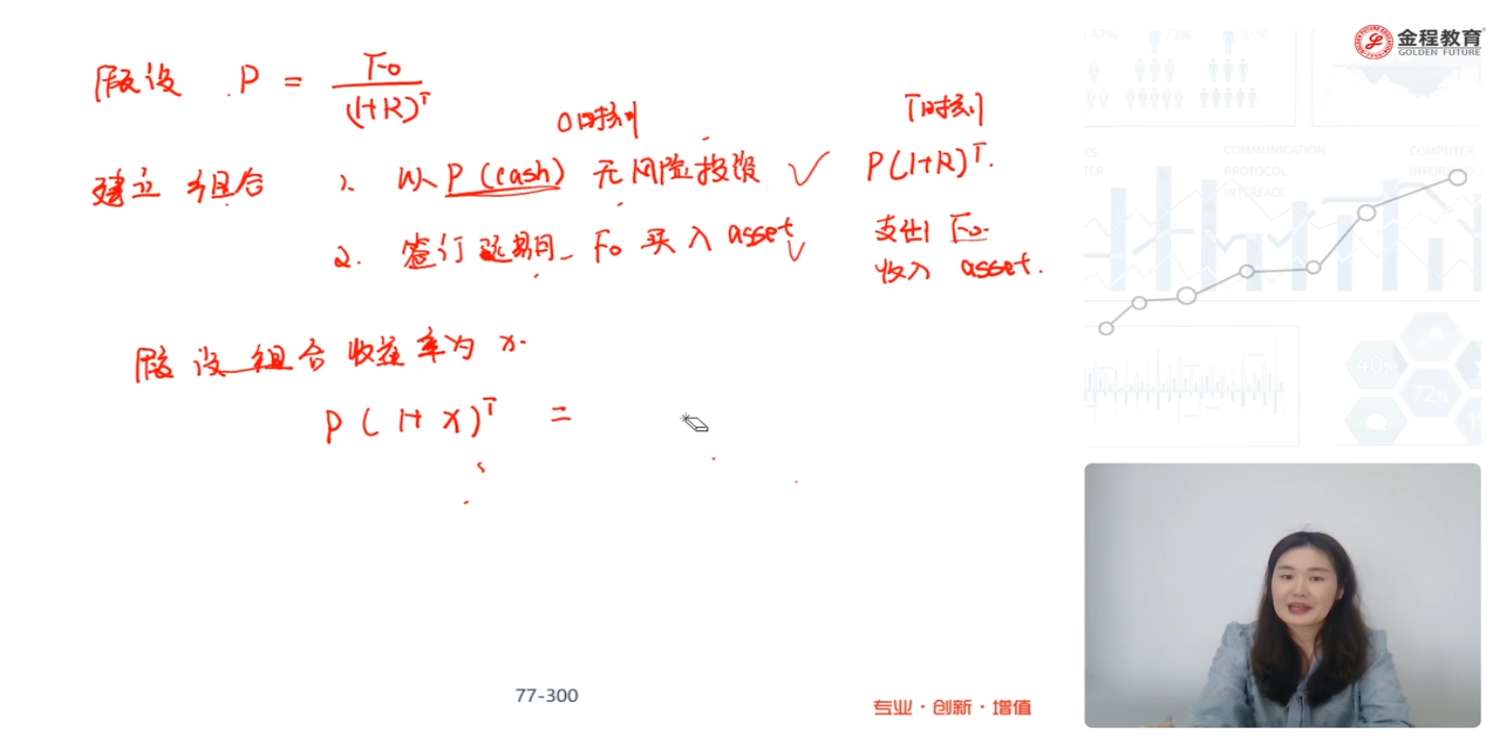 金程教育
GOLDEN FUTURE
假设 P = F0/(1+R)^T
0时刻 T时刻
建立组合 1. 以 P (cash) 无风险投资 ✓ P(1+R)^T.
2. 签订远期 F0 买入 asset ✓ 支出 F0
收入 asset.
假设组合收益率为 x.
P(1+x)^T =
COMMUNICATION
PROTOCOL
INTERFACE
COMPUTER
40%
72%
77-300
专业·创新·增值